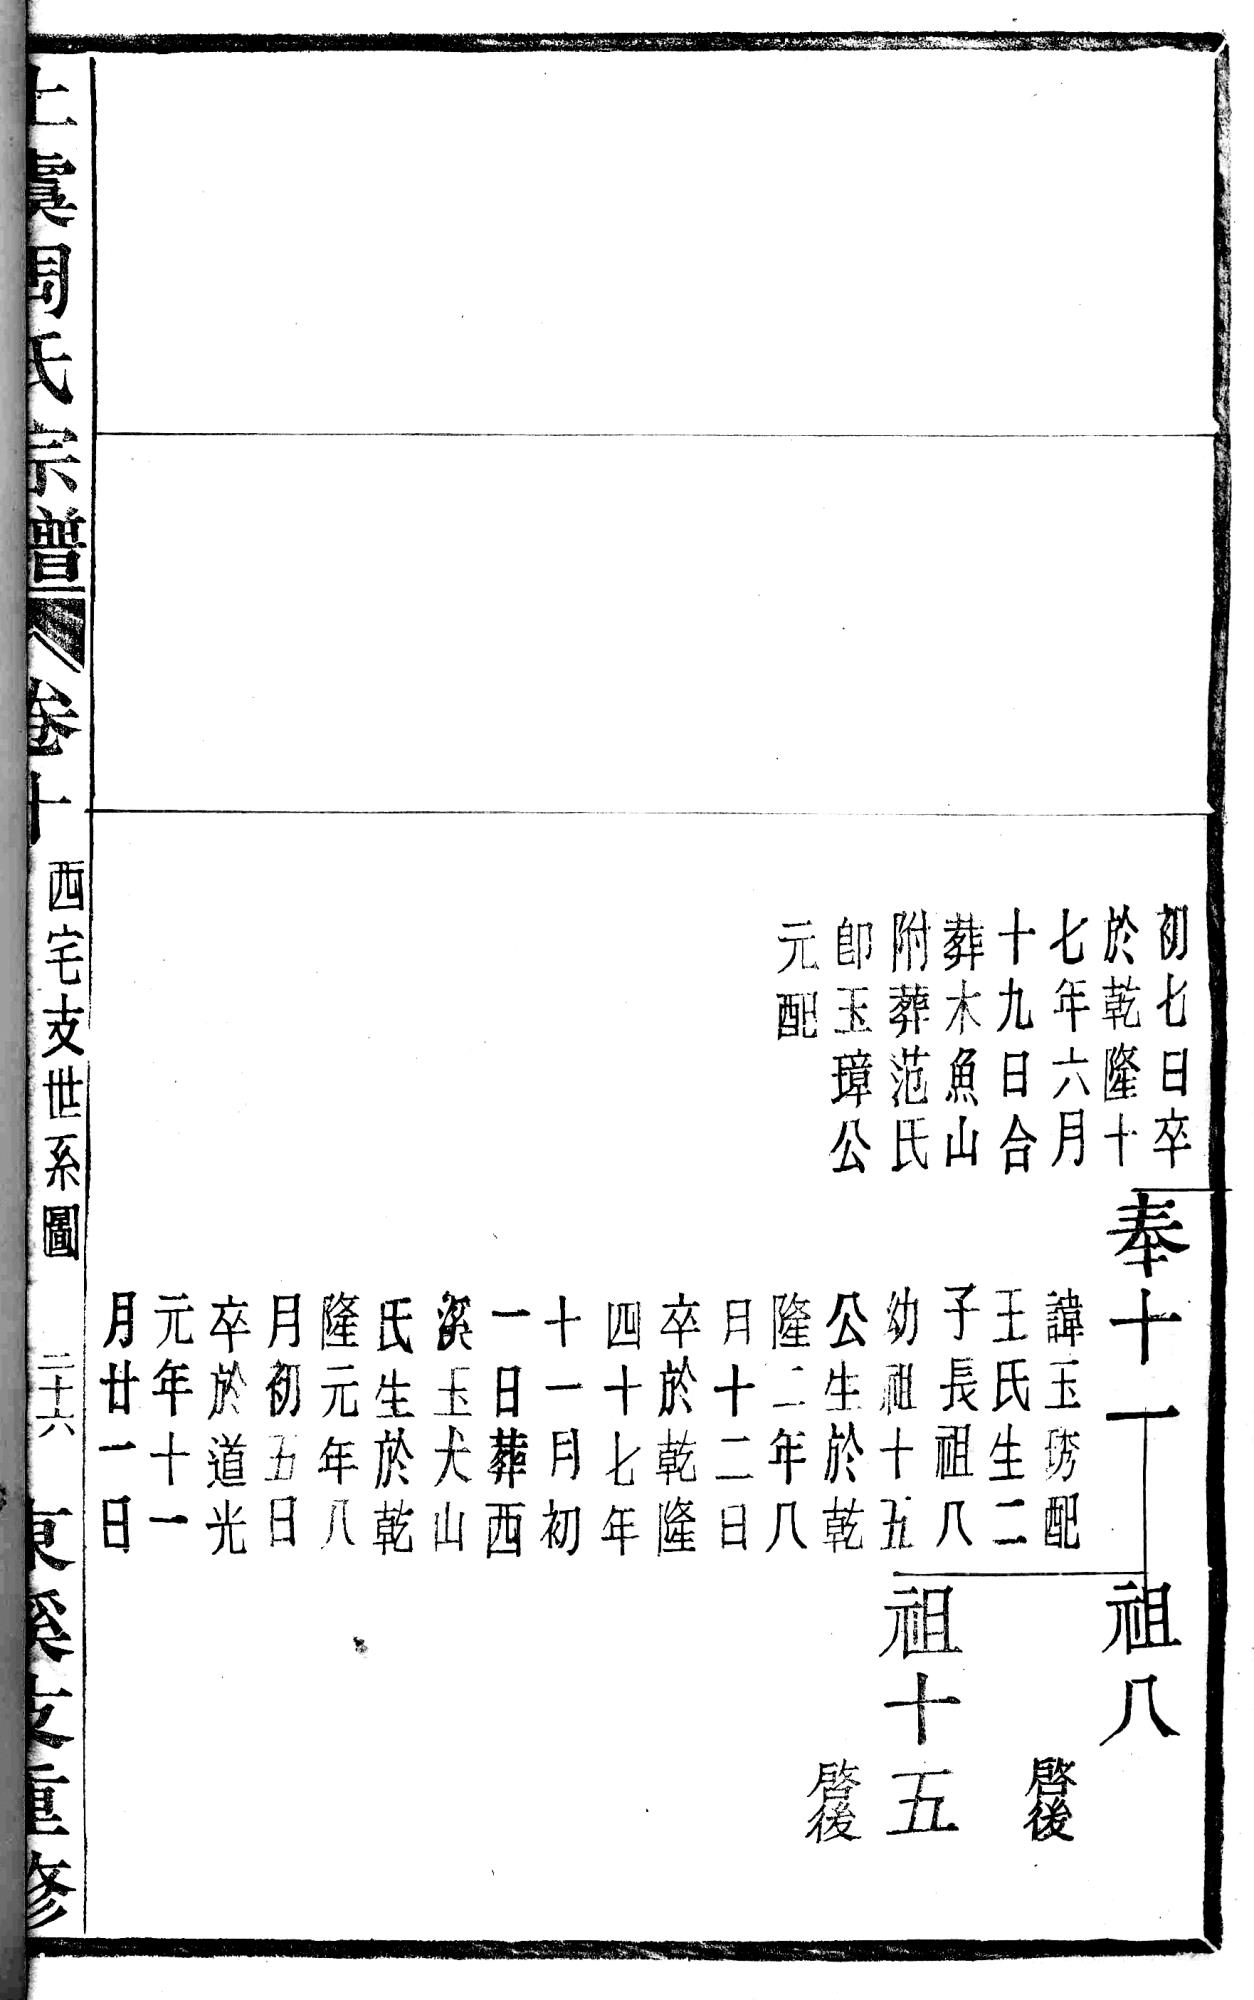 初七日卒
於乾隆十
七年六月
十九日合
葬木魚山
附葬范氏
卽玉璋公
元配
奉十一
諱玉琇配
王氏生二
子長祖八
幼祖十五
公生於乾
隆二年八
月十二日
卒於乾隆
四十七年
十一月初
一日葬西
溪玉犬山
氏生於乾
隆元年八
月初五日
卒於道光
元年十一
月廿一日
祖八
啓後
祖十五
啓後
上虞周氏宗譜
卷十
西宅支世系圖
二十六
東溪支重修